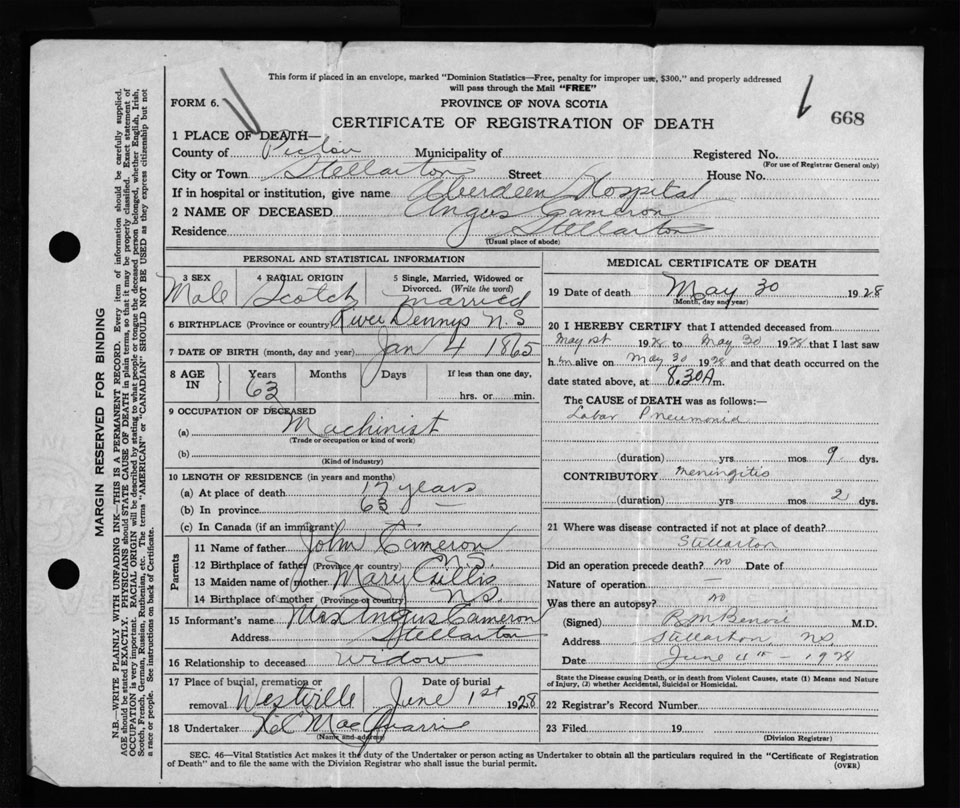 This form if placed in an envelope, marked "Dominion Statistics—Free, penalty for improper use, $300," and properly addressed
will pass through the Mail "FREE"
FORM 6.
PROVINCE OF NOVA SCOTIA
CERTIFICATE OF REGISTRATION OF DEATH
668
1 PLACE OF DEATH—
County of Pictou Municipality of Registered No.
(For use of Registrar General only)
City or Town Stellarton Street House No.
If in hospital or institution, give name Aberdeen Hospital
2 NAME OF DECEASED Angus Cameron
Residence Stellarton
(Usual place of abode)
PERSONAL AND STATISTICAL INFORMATION
3 SEX 4 RACIAL ORIGIN 5 Single, Married, Widowed or
Divorced. (Write the word)
Male Scotch Married
6 BIRTHPLACE (Province or country) River Dennys N.S
7 DATE OF BIRTH (month, day and year) Jan 4 1865
8 AGE IN Years Months Days If less than one day,
63 hrs. or min.
9 OCCUPATION OF DECEASED
(a) Machinist
(Trade or occupation or kind of work)
(b)
(Kind of industry)
10 LENGTH OF RESIDENCE (in years and months)
(a) At place of death 17 years
(b) In province 63 —
(c) In Canada (if an immigrant)
Parents
11 Name of father John Cameron
12 Birthplace of father (Province or country) N.S.
13 Maiden name of mother Mary
14 Birthplace of mother (Province or country) N.S.
15 Informant's name Mrs Angus Cameron
Address Stellarton
16 Relationship to deceased widow
17 Place of burial, cremation or Date of burial
removal Westville June 1st 1928
18 Undertaker MacQuarrie
(Name and address)
MEDICAL CERTIFICATE OF DEATH
19 Date of death May 30 1928
(Month, day and year)
20 I HEREBY CERTIFY that I attended deceased from
May 1st 1928 to May 30 1928 that I last saw
h im alive on May 30 1928 and that death occurred on the
date stated above, at 8.30 A m.
The CAUSE of DEATH was as follows:—
Lobar Pneumonia
(duration) yrs mos 9 dys.
CONTRIBUTORY Meningitis
(duration) yrs mos 2 dys.
21 Where was disease contracted if not at place of death?
Stellarton
Did an operation precede death? no Date of
Nature of operation —
Was there an autopsy? no
(Signed) Benoit M.D.
Address Stellarton NS
Date June 11th - 1928
State the Disease causing Death, or in death from Violent Causes, state (1) Means and Nature
of Injury, (2) whether Accidental, Suicidal or Homicidal.
22 Registrar's Record Number
23 Filed 19
(Division Registrar)
SEC. 46—Vital Statistics Act makes it the duty of the Undertaker or person acting as Undertaker to obtain all the particulars required in the "Certificate of Registration
of Death" and to file the same with the Division Registrar who shall issue the burial permit.
(OVER)
MARGIN RESERVED FOR BINDING
N.B.—WRITE PLAINLY WITH UNFADING INK—THIS IS A PERMANENT RECORD. Every item of information should be carefully supplied.
AGE should be stated EXACTLY. PHYSICIANS should STATE CAUSE OF DEATH in plain terms, so that it may be properly classified. Exact statement of
OCCUPATION is very important. RACIAL ORIGIN will be described by stating to what people or tongue the deceased person belonged, whether English, Irish,
Scotch, French, German, Russian, Ruthenian, etc. The terms "AMERICAN" or "CANADIAN" SHOULD NOT BE USED as they express citizenship but not
a race or people. See instructions on back of Certificate.